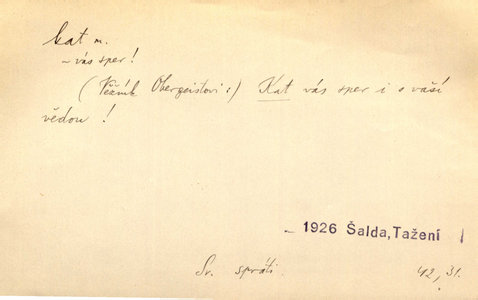 kat m.
~ vás sper!
(Vězník Obergeistovi:) Kat vás sper i s vaší
vědou!
– 1926 Šalda, Tažení
Sr. spráti.
42, 31.